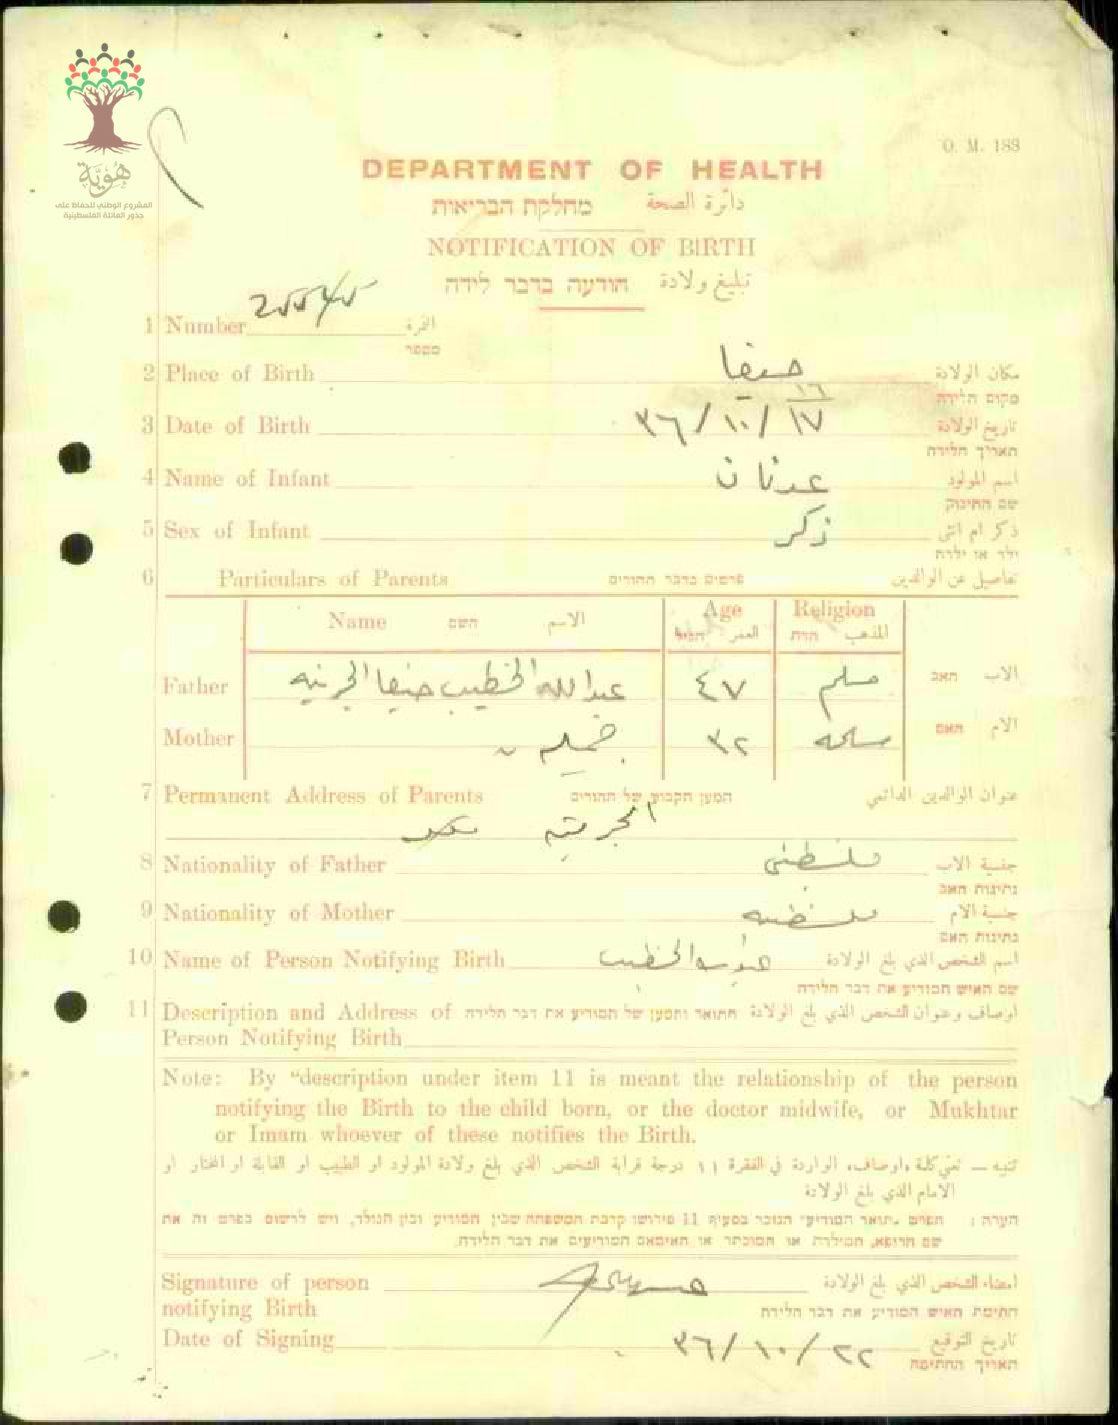 هُوِيَّة
المشروع الوطني للحفاظ على
جذور العائلة الفلسطينية
O. M. 188
DEPARTMENT OF HEALTH
מחלקת הבריאות دائرة الصحة
NOTIFICATION OF BIRTH
הודעה בדבר לידה تبليغ ولادة
1 Number النمرة
מספר
2 Place of Birth حيفا مكان الولادة
מקום הלידה
١٦
3 Date of Birth ٣٦/١٠/١٧ تاريخ الولادة
תאריך הלידה
4 Name of Infant عدنان اسم المولود
שם התינוק
5 Sex of Infant ذكر ذكر ام انثى
ילד או ילדה
6 Particulars of Parents פרטים בדבר ההורים تفاصيل عن الوالدين
Name השם الاسم Age Religion
הגיל العمر הדת المذهب
Father عبدالله الخطيب حيفا ٤٧ مسلم האב الاب
Mother ٣٢ مسلمه האם الام
7 Permanent Address of Parents המען הקבוע של ההורים عنوان الوالدين الدائمي
8 Nationality of Father فلسطيني جنسية الاب
נתינות האב
9 Nationality of Mother فلسطينيه جنسية الام
נתינות האם
10 Name of Person Notifying Birth عبدالله الخطيب اسم الشخص الذي بلغ الولادة
שם האיש המודיע את דבר הלידה
11 Description and Address of התואר והמען של המודיע את דבר הלידה اوصاف وعنوان الشخص الذي بلغ الولادة
Person Notifying Birth
Note: By “description under item 11 is meant the relationship of the person
notifying the Birth to the child born, or the doctor midwife, or Mukhtar
or Imam whoever of these notifies the Birth.
تنبيه — تعني كلة ,اوصاف, الواردة في الفقرة ١١ درجة قرابة الشخص الذي بلغ ولادة المولود او الطبيب او القابلة او المختار او
الامام الذي بلغ الولادة
הערה: הפרט ,תואר המודיע" הנזכר בסעיף 11 פירושו קרבת המשפחה שבין המודיע ובין הנולד, ויש לרשום בפרט זה את
שם הרופא, המילדת או המוכתר או האימאם המודיעים את דבר הלידה.
Signature of person امضاء الشخص الذي بلغ الولادة
notifying Birth חתימת האיש המודיע את דבר הלידה
Date of Signing ٣٦/١٠/٢٢ تاريخ التوقيع
תאריך החתימה